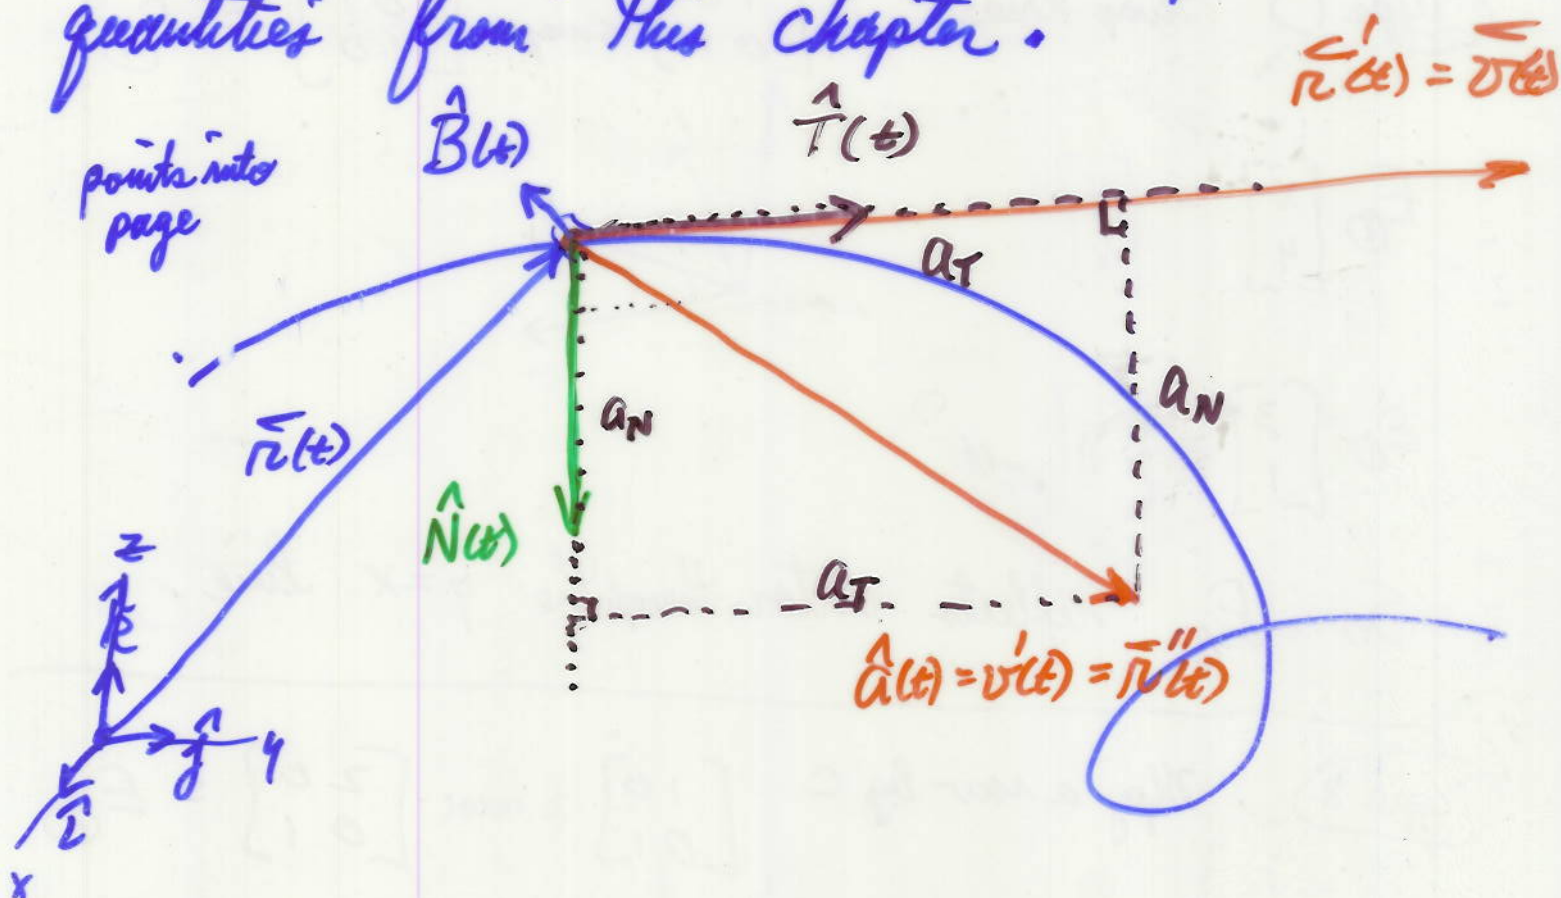 quantities from this chapter.
r⃗'(t) = v⃗(t)
B̂(t)
T̂(t)
points into
page
a_T
a_N
a_N
r⃗(t)
N̂(t)
a_T
â(t) = v'(t) = r⃗''(t)
z
k̂
ĵ
y
î
x